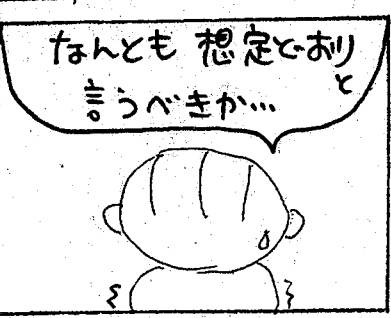 なんとも 想定どおり
と
言うべきか…